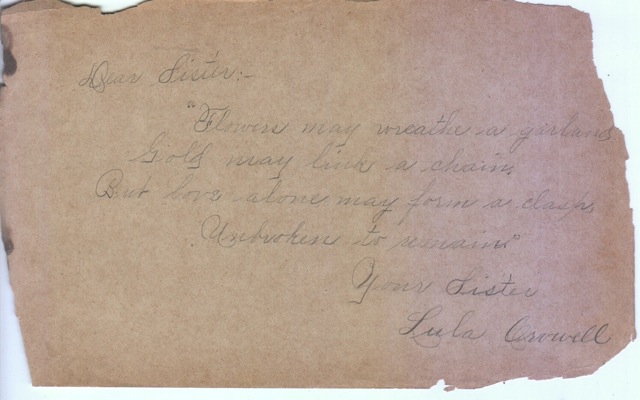 Dear Sister:-
"Flowers may wreathe a garland
Gold may link a chain,
But love alone may form a clasp,
Unbroken to remain."
Your Sister
Lula Crowell